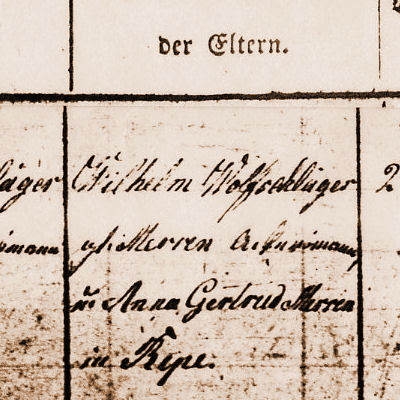 der Eltern.
läger Wilhelm Wolfschläger 2
mann gt. Merren Ackersmann,
u: Anna Gertrud Merren
in Ripe.